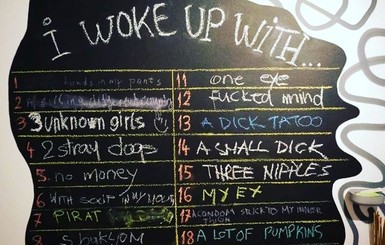 i WOKE UP WITH...
1 hands in my pants
2
3 3 unknown girls
4 2 stray dogs
5 no money
6 WITH SCIT IN MY MOUTH
7 PIRAT
8
11 one eye
12 fucked mind
13 A DICK TATOO
14 A SMALL DICK
15 THREE NIPPLES
16 MY EX
17 A CONDOM STUCK TO MY INNER THIGH
18 A LOT OF PUMPKINS